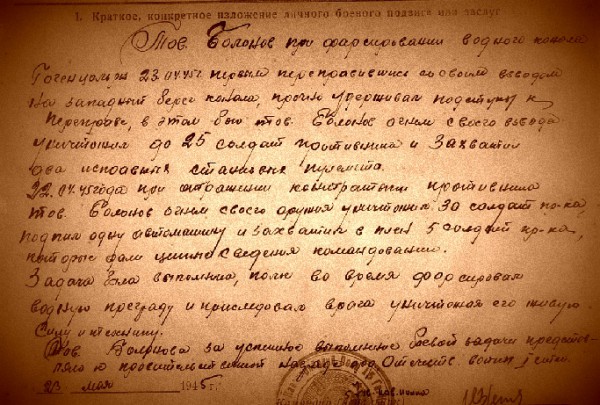 I. Краткое, конкретное изложение личного боевого подвига или заслуг
Тов. Болонов при форсировании водного канала
Гогенцолерн 23.04.45г первым переправившись со своим взводом
на западный берег канала, прочно удерживал подступы к
переправе, в этом бою тов. Болонов огнем своего взвода
уничтожил до 25 солдат противника и захватил
два исправных станковых пулемета.
22.04.45 года при отражении контратаки противника
тов. Болонов огнем своего оружия уничтожил 30 солдат пр-ка,
подбил одну автомашину и захватил в плен 5 солдат пр-ка,
которые дали ценные сведения командованию.
Задача была выполнена, полк во время форсировал
водную преграду и приследовал врага уничтожая его живую
силу и технику.
Тов. Болонова за успешное выполнение боевой задачи представ-
ляю к правительственной награде орд. Отечеств. войны I степ.
23 мая 1945г.